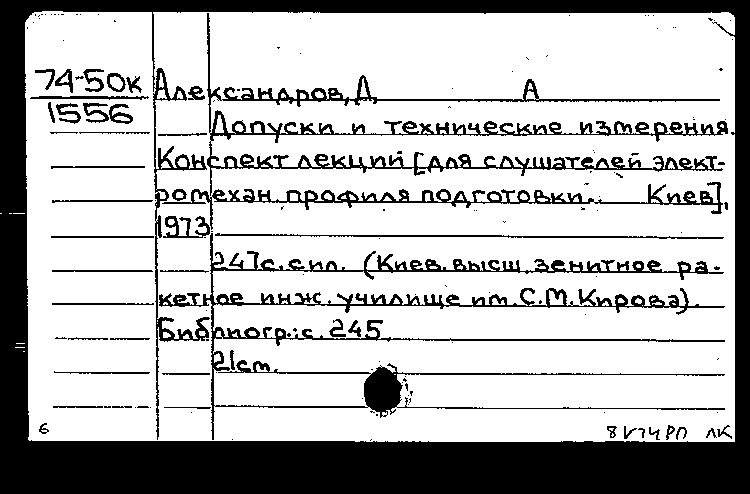 74-50к Александров, Д. А
1556
Допуски и технические измерения.
Конспект лекций [для слушателей элект-
ромехан. профиля подготовки. Киев],
1973
247с. с ил. (Киев. высш. зенитное ра-
кетное инж. училище им. С.М. Кирова).
Библиогр.: с. 245.
21см.
6 8 V 74 РП ЛК